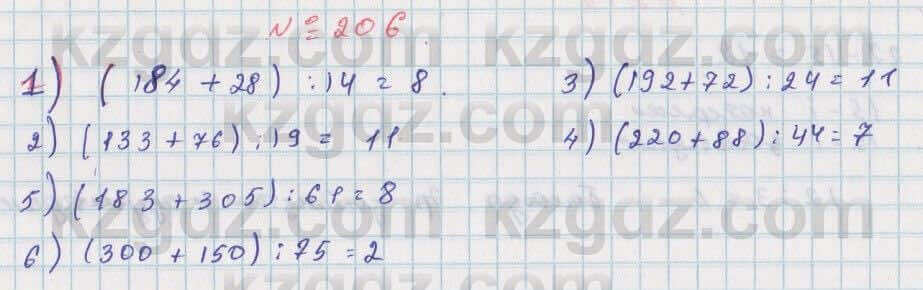 № 206.
1) (184 + 28) : 14 = 8.
3) (192 + 72) : 24 = 11
2) (133 + 76) : 19 = 11
4) (220 + 88) : 44 = 7
5) (183 + 305) : 61 = 8
6) (300 + 150) : 75 = 2
kzgdz.com
kzgdz.com
kzgdz.com
kzgdz.com
kzgdz.com
kzgdz.com